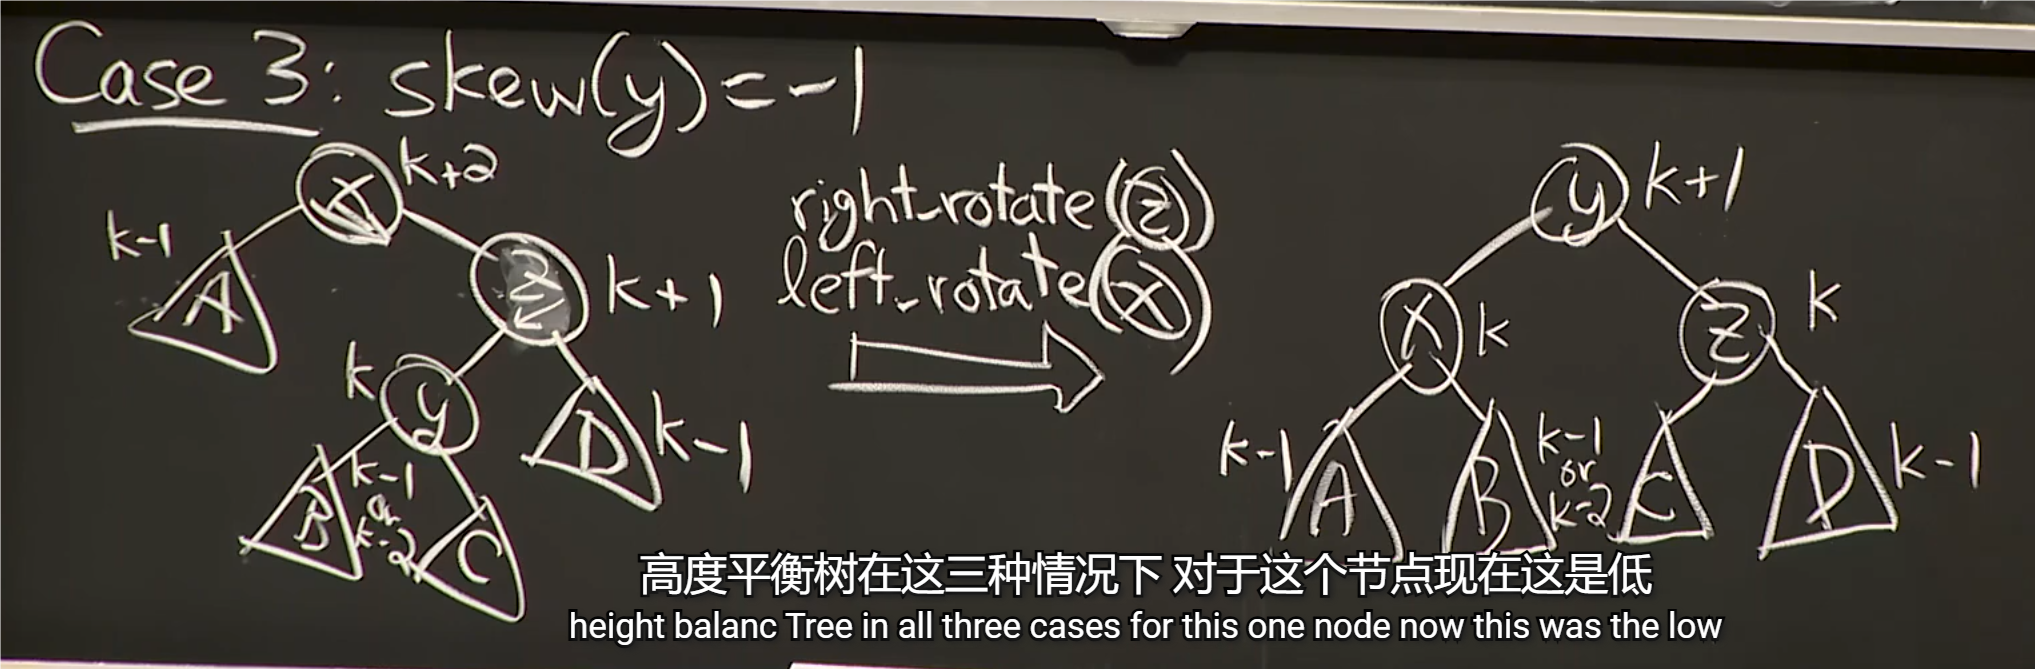 Case 3: skew(y)=-1
x k+2
k-1 A
z k+1
k y
D k-1
B k-1 or k-2 C
right_rotate(z)
left_rotate(x)
y k+1
x k
z k
k-1 A
B k-1 or k-2 C
D k-1
高度平衡树在这三种情况下 对于这个节点现在这是低
height balanc Tree in all three cases for this one node now this was the low